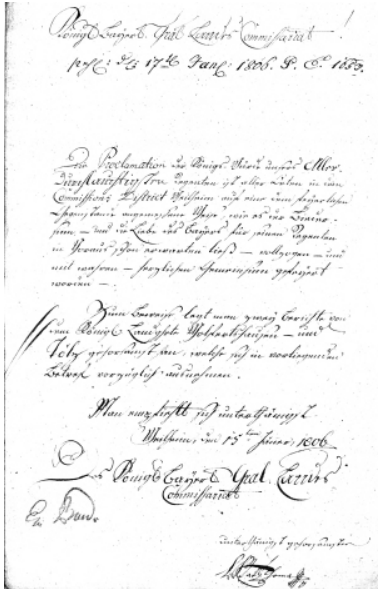 Königl. Bayers. Gral Landes Commissariat!
17. Jan. 1806.
Die Proclamation der Königs unsers Aller
Durchlauchtigsten Regenten ist aller Orten in dem
Commissions District Weilheim auf eine dem feyerlichen
angemessene Weise, wie es der
sinn – und die Liebe des Bayers für seinen Regenten
in Voraus schon erwarten ließ – vollzogen – und
mit wahren – herzlichen gefeyert
worden –
Zum Beweise legt man zwey Berichte von
dem Königl. Landgerichte Wolfertshausen – und
Tölz gehorsamst an, welche sich in vorliegenden
Betreff vorzüglich ausnehmen.
Man empfiehlt sich unterthänigst
Weilheim, den 15ten Jäner, 1806
Des Königl. Bayers. Gral Landes
Commissariats
unterthänigst gehorsamster